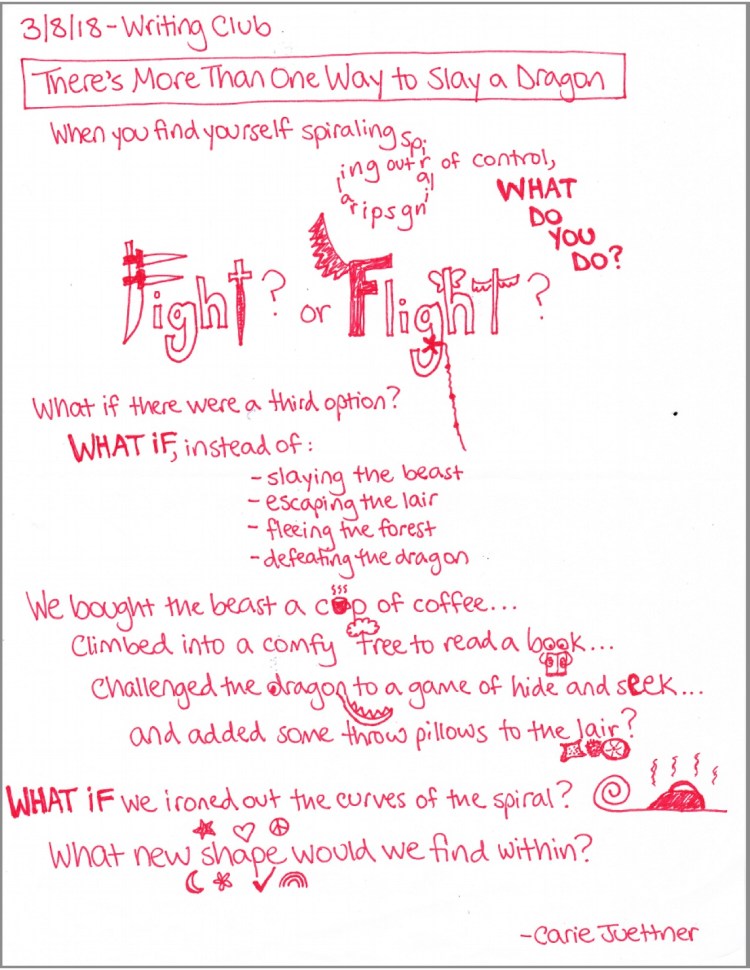 3/8/18 - Writing Club
There's More Than One Way to Slay a Dragon
When you find yourself spiraling spiraling out of control,
WHAT
DO
YOU
DO?
Fight? or Flight?
What if there were a third option?
WHAT iF, instead of:
- slaying the beast
- escaping the lair
- fleeing the forest
- defeating the dragon
We bought the beast a cup of coffee...
Climbed into a comfy tree to read a book...
Challenged the dragon to a game of hide and sEEK...
and added some throw pillows to the lair?
WHAT iF we ironed out the curves of the spiral?
What new shape would we find within?
- Carie Juettner